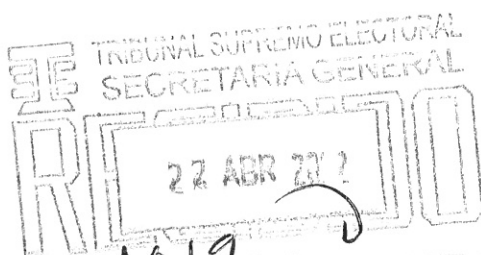 TRIBUNAL SUPREMO ELECTORAL
SECRETARIA GENERAL
RECIBIDO
22 ABR